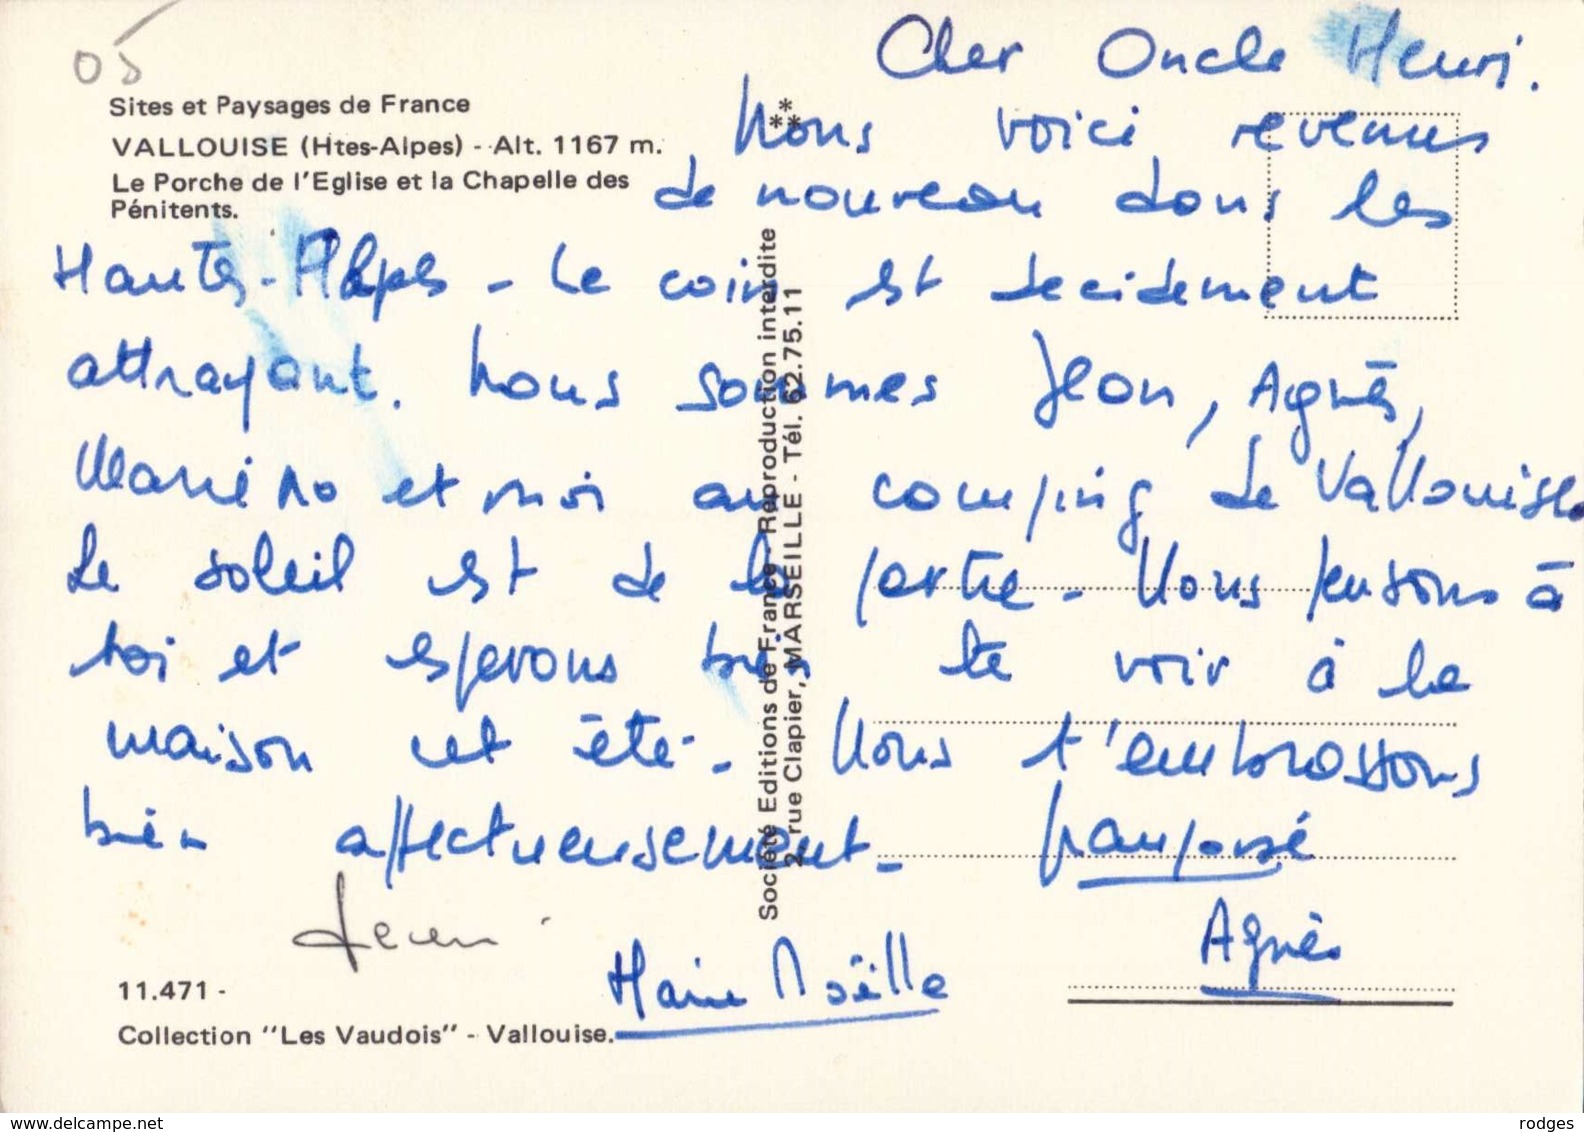 05
Sites et Paysages de France
VALLOUISE (Htes-Alpes) - Alt. 1167 m.
Le Porche de l'Eglise et la Chapelle des
Pénitents.
Cher Oncle Henri.
Nous voici revenus
de nouveau dans les
Hautes-Alpes - Le coin est decidement
attrayant. Nous sommes Jean, Agnès,
Marie No et moi au camping de Vallouise
Le soleil est de la partie - Nous pensons à
toi et esperons bien te voir à la
maison cet été - Nous t'embrassons
bien affectueusement -
Agnès
Marie Noëlle
***
Société Editions de France - Reproduction interdite
2, rue Clapier, MARSEILLE - Tél. 62.75.11
11.471 -
Collection "Les Vaudois" - Vallouise.
www.delcampe.net
rodges